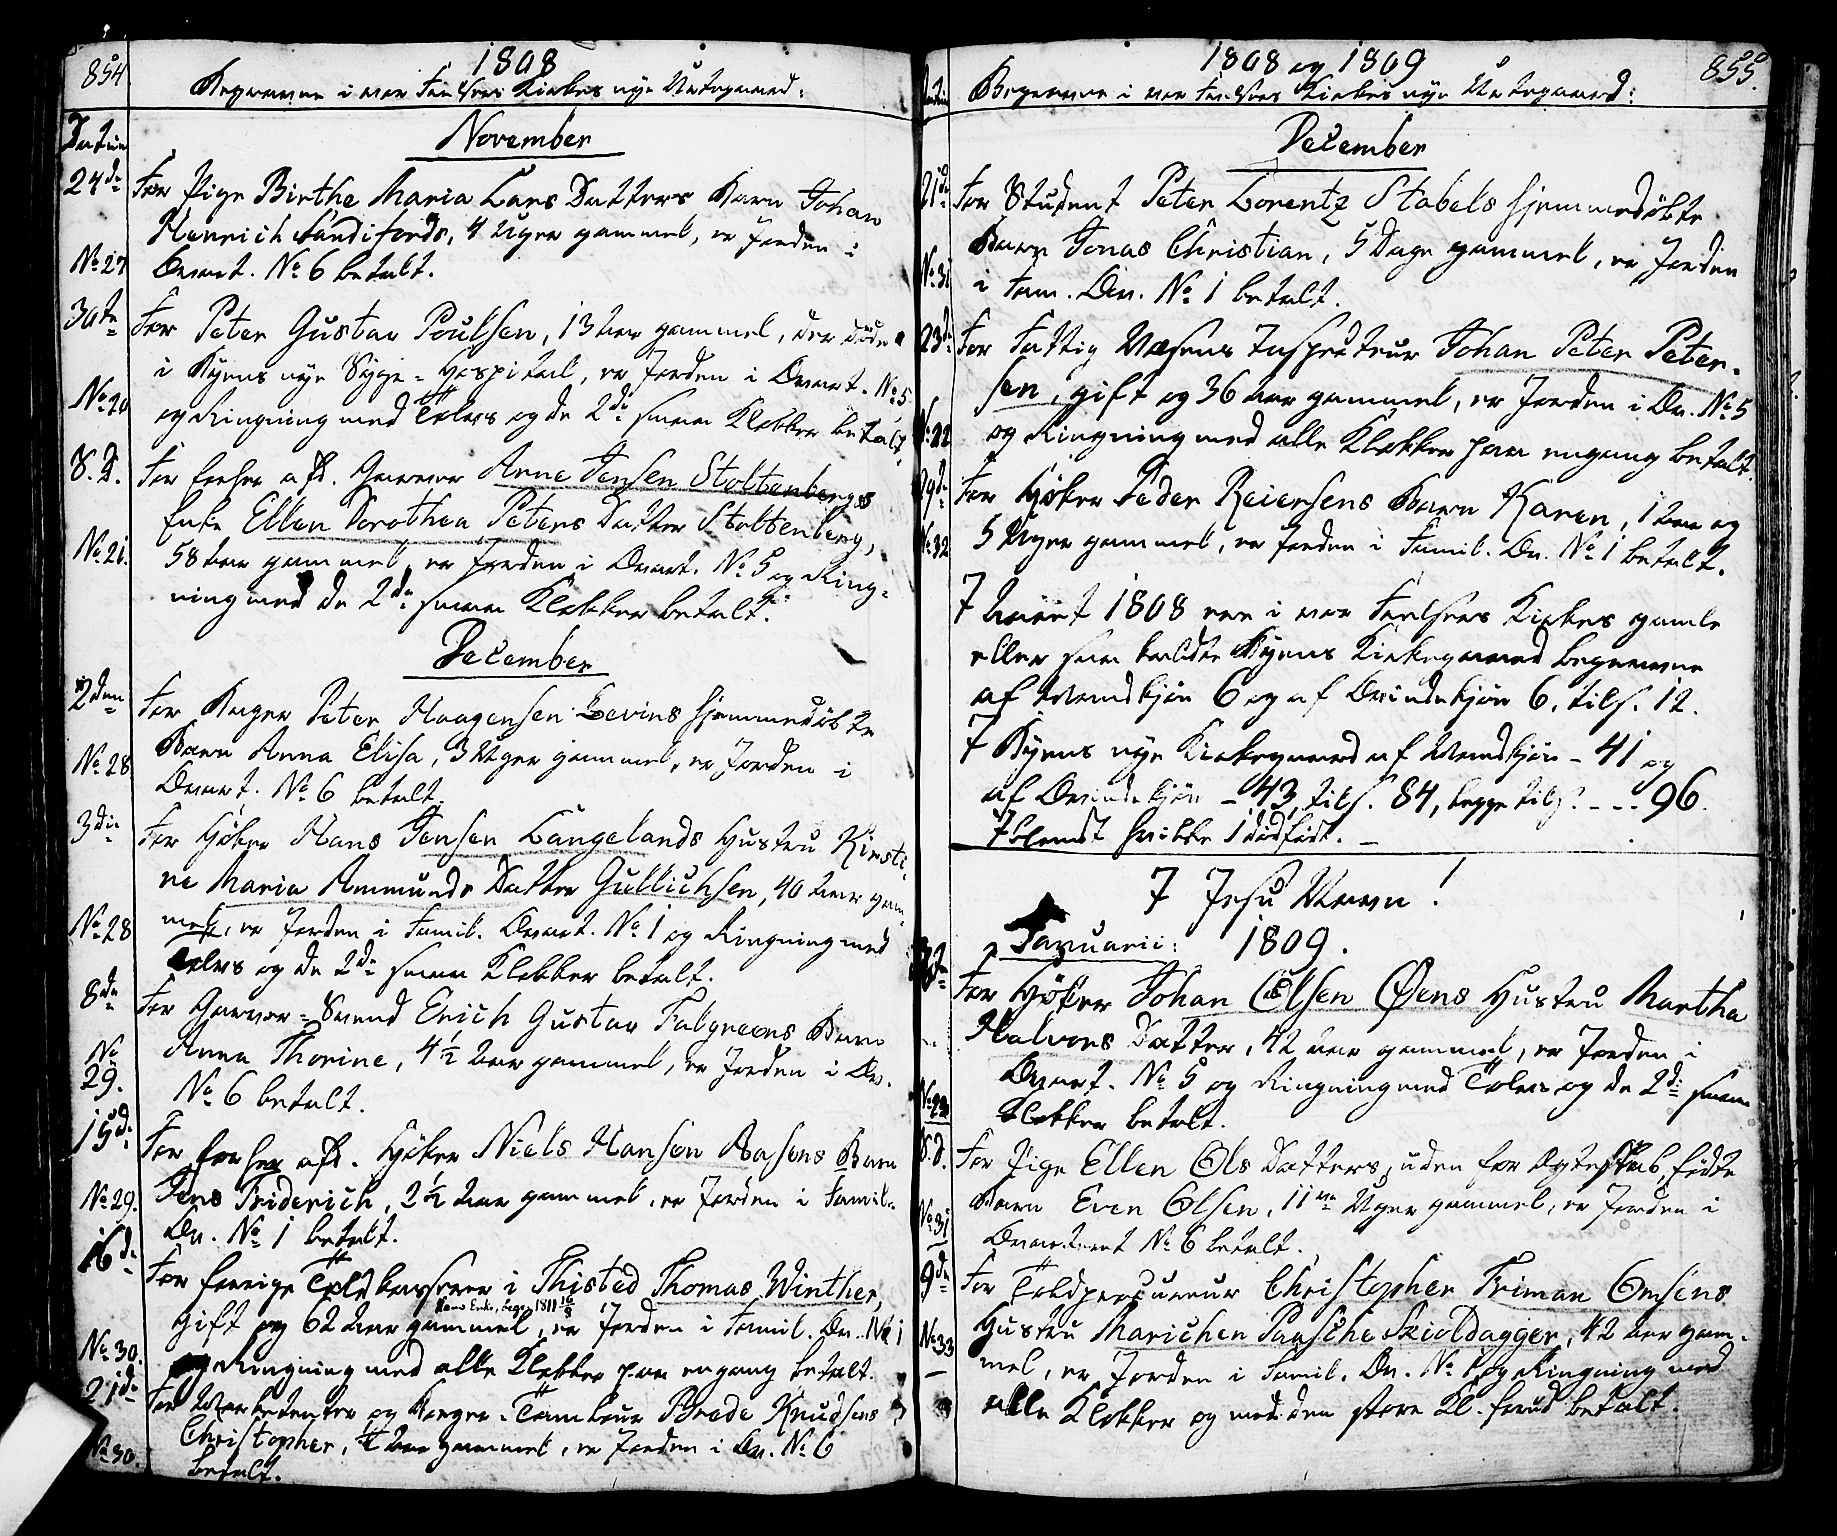 854
1808
Begravne i vor Frelsers Kirkes nye Kirkegaard:
Datum
November
24de For Pige Birthe Maria Lars Datters Barn Johan
Henrich Sandifords, 4 Uger gammel, er Jorden i
No 27 Qvart. No 6 betalt.
30te For Peter Gustav Poulsen, 13 Aar gammel, der døde
i Byens nye Syge-Hospital, er Jorden i Qvart. No 5
No 20 og Ringning med Tolvs og de 2de smaa Klokker betalt
S.D. For forhen afd. Garver Arne Jensen Stoltenbergs
Enke Ellen Dorothea Peters Datter Stoltenberg,
No 21. 58 Aar gammel, er Jorden i Qvart. No 5 og Ring-
ning med de 2de smaa Klokker betalt.
December
2den For Bager Peter Haagensen Levins hjemmedøbte
Barn Anna Elisa, 3 Uger gammel, er Jorden i
No 28 Qvart. No 6 betalt.
3die For Høker Hans Jensen Langelands Hustru Kirsti-
ne Maria Ammunds Datter Gullichsen, 40 Aar gam-
No 28 mel, er Jorden i Famil. Qvart. No 1 og Ringning med
Tolvs og de 2de smaa Klokker betalt.
8de For Garver-Svend Erich Gustav Falgreens Barn
Anna Thorine, 4½ Aar gammel, er Jorden i Qv.
No 29. No 6 betalt.
15de For forhen afd. Høker Niels Hansen Aasens Barn
No 29. Jens Friderich, 2½ Aar gammel, er Jorden i Famil.
Qv. No 1 betalt.
16de For forrige Toldkasserer i Thisted Thomas Winther,
hans Enke, begr. 1811 16/8
gift og 62 Aar gammel, er Jorden i Famil. Qv. No 1
No 30. og Ringning med alle Klokker paa engang betalt.
21de For Værtshuusholder og Borger-Tambour Brede Knudsens
Christopher, Aar gammel, er Jorden i Qv. No 6
No 30. betalt.
1808 og 1809
855.
Begravne i vor Frelsers Kirkes nye Kirkegaard:
December
21de For Student Peter Lorentz Stabels hjemmedøbte
Barn Jonas Christian, 5 Dage gammel, er Jorden
No 31 i Fam. Qv. No 1 betalt.
23de For Fattig Væsens Inspecteur Johan Peter Peter-
sen, gift og 36 Aar gammel, er Jorden i Qv. No 5
No 22 og Ringning med alle Klokker paa engang betalt.
29de For Høker Peder Reiersens Barn Karen, 1 Aar og
No 32 5 Uger gammel, er Jorden i Famil. Qv. No 1 betalt.
I Aaret 1808 ere i vor Frelsers Kirkes gamle
eller saa kaldte Byens Kirkegaard begravne
af Mandkjøn 6 og af Qvindekjøn 6, tils. 12.
I Byens nye Kirkegaard af Mandkjøn - 41 og
af Qvindekjøn - 43, tils. 84, begge tils. - - - 96.
Iblandt hvilke 1 dødfødt. -
I Jesu Navn!
Januarii: 1809.
For Høker Johan Olsen Øens Hustru Martha
Halvors Datter, 42 Aar gammel, er Jorden i
Qvart. No 5 og Ringning med Tolvs og de 2de smaa
No 23 Klokker betalt.
S.D. For Pige Ellen Ols Datters, uden for Ægteskab, fødte
Barn Even Olsen, 11 Uger gammel, er Jorden i
No 31 Qvarteret No 6 betalt.
9de For Toldprocureur Christopher Friman Omsens
No 33 Hustru Marichen Paasche Skioldagger, 42 Aar gam-
mel, er Jorden i Famil. Qv. No 1 og Ringning med
alle Klokker og med den store Kl. forud betalt.